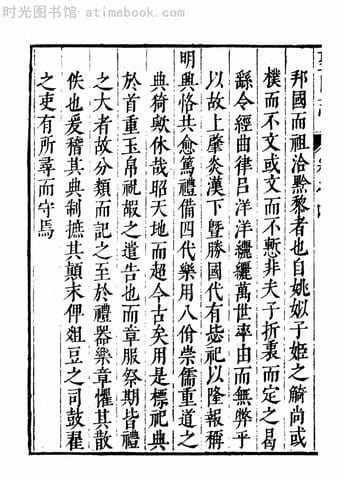 时光图书馆 - atimebook.com
邦國而祖洽黔黎者也自姚姒子姬之觭尚或
樸而不文或文而不慙非夫子折衷而定之曷
繇令經曲律呂洋洋纚纚萬世率由而無弊乎
以故上肇炎漢下曁勝國代有毖祀以隆報稱
明興恪共愈篤禮備四代樂用八佾崇儒重道之
典猗歟休哉昭天地而超今古矣用是標祀典
於首重玉帛祝嘏之遣告也而章服祭期皆禮
之大者故分類而記之至於禮器樂章懼其散
佚也爰稽其典制摭其顛末俾俎豆之司鼓翟
之吏有所尋而守焉